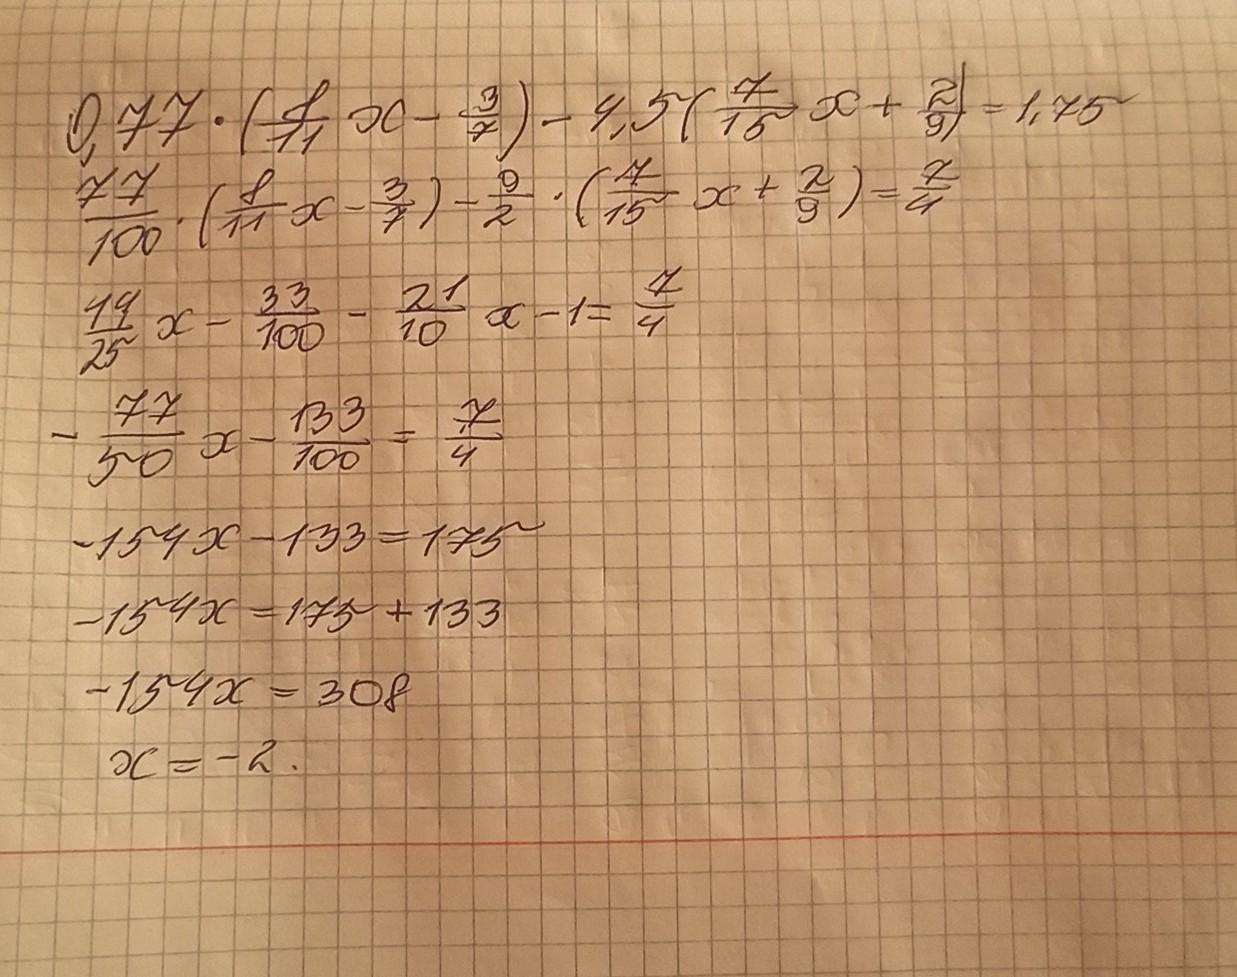 0,77·(8/11 x - 3/7) - 4,5(7/15 x + 2/9) = 1,75
77/100·(8/11 x - 3/7) - 9/2·(7/15 x + 2/9) = 7/4
14/25 x - 33/100 - 21/10 x - 1 = 7/4
-77/50 x - 133/100 = 7/4
-154x - 133 = 175
-154x = 175 + 133
-154x = 308
x = -2.